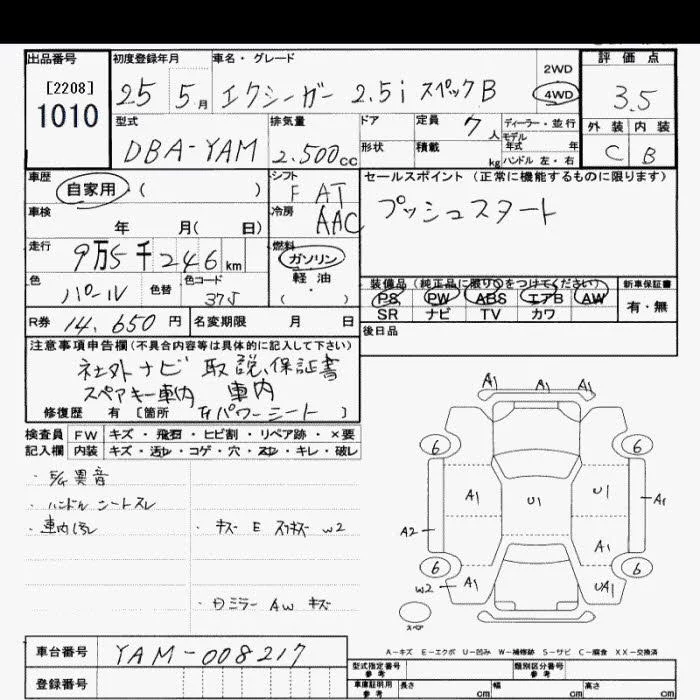 出品番号 初度登録年月 車名・グレード 評価点
[2208]
1010
25 5月 エクシーガー 2.5i スペックB
2WD
4WD
3.5
型式 排気量 ドア 定員 7人 ディーラー・並行
モデル
年式 年
形状 積載 kg ハンドル 左・右
DBA-YAM 2.500cc
外装 内装
C B
車歴
自家用 ( )
シフト
F AT
冷房
AAC
セールスポイント (正常に機能するものに限ります)
プッシュスタート
車検
年 月( 日)
走行 9万5千246km
燃料
ガソリン
軽油
( )
色 パール 色替 色コード 37J
装備品 (純正品に限り○をつけてください) 新車保証書
PS PW ABS エアB AW
SR ナビ TV カワ
有・無
R券 14,650円 名変期限 月 日
後日品
注意事項申告欄(不具合内容等は具体的に記入して下さい)
社外ナビ 取説、保証書
スペアキー車内 車内
修復歴 有 [箇所 パワーシート ]
検査員 FW キズ・飛石・ヒビ割・リペア跡・×要
記入欄 内装 キズ・汚レ・コゲ・穴・スレ・キレ・破レ
・異音
・ハンドル シートスレ
・車内汚レ
・キズ E スリキズ W2
・ミラー AW キズ
A1 A1 A1
6 6
A1 U1 U1 A1
A2 A1
6 6
W2 A1 UA1
スペア
A-キズ E-エクボ U-凹み W-補修跡 S-サビ C-腐食 XX-交換済
車台番号 YAM-008217
登録番号
型式指定番号
参考
類別区分番号
参考
車庫証明用
参考
長さ cm 幅 cm 高さ cm